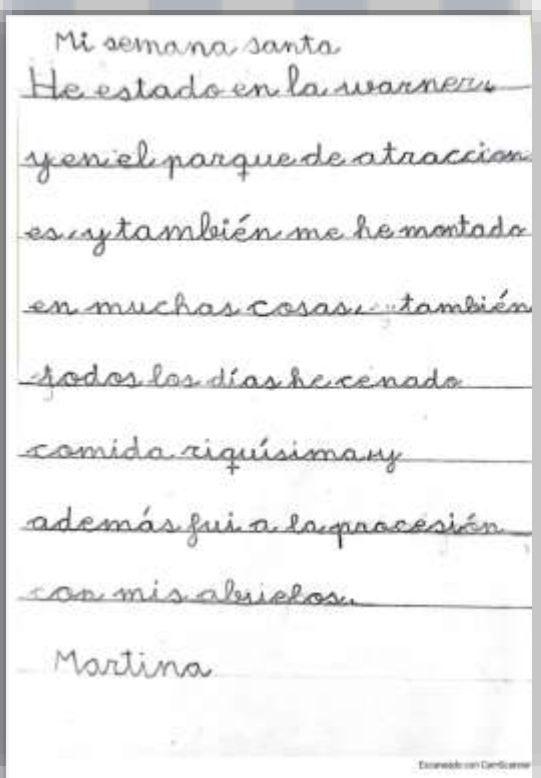 Mi semana santa
He estado en la warner,
y en el parque de atraccion
es, y también me he montado
en muchas cosas, también
todos los días he cenado
comida riquísima, y
además fui a la procesión
con mis abuelos.
Martina
Escaneado con CamScanner